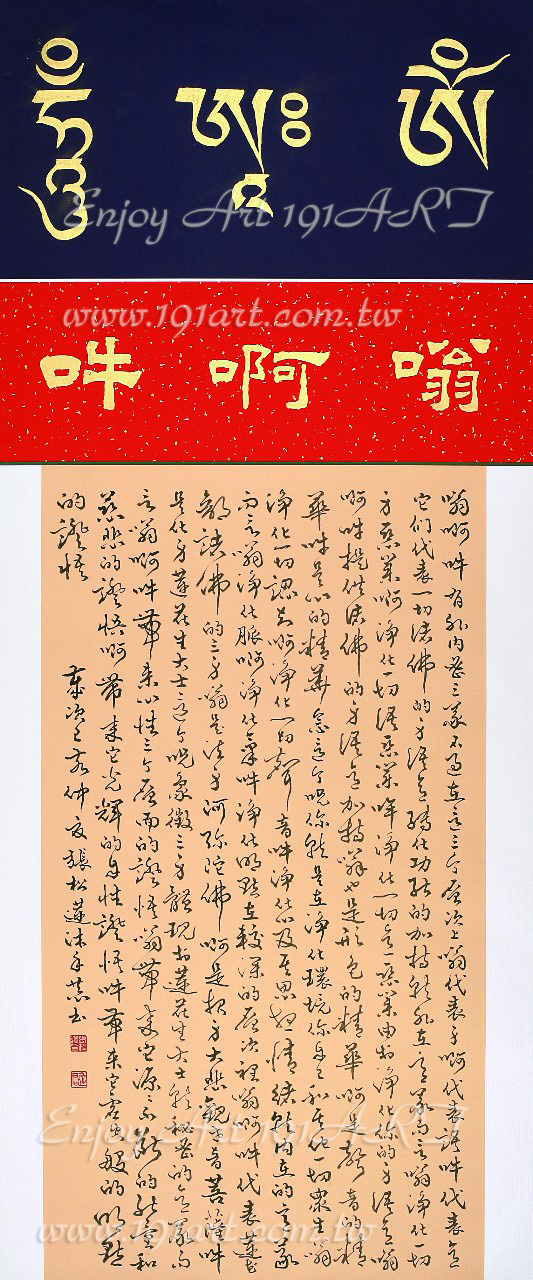 ཨོཾ ཨཱཿ ཧཱུྃ
Enjoy Art 191ART
www.191art.com.tw
嗡啊吽
嗡啊吽有外內密三義不過在這三个層次上嗡代表身啊代表語吽代表意
它们代表一切諸佛的身語意轉化功能的加持就外在意義而言嗡淨化一切
身惡業啊淨化一切語惡業吽淨化一切意惡業由於淨化你的身語意嗡
啊吽提供諸佛的身語意加持嗡也是形色的精華啊是聲音的精
華吽是心的精華念這个咒你就是在淨化環境你自己和其他一切眾生嗡
淨化一切認知啊淨化一切聲音吽淨化心及其思想情緒就內在的意義
而言嗡淨化脈啊淨化氣吽淨化明點在較深的層次裡嗡啊吽代表蓮花
部諸佛的三身嗡是法身阿彌陀佛啊是報身大悲觀世音菩薩吽
是化身蓮花生大士這个咒象徵三身體現於蓮花生大士就秘密的意義而
言嗡啊吽帶來心性三个層面的證悟嗡帶來它源源不斷的能量和
慈悲的證悟啊帶來它光輝的自性證悟吽帶來它虛空般的明點
的證悟
歲次乙亥仲夏張松蓮沐手恭書
Enjoy Art 191ART
www.191art.com.tw